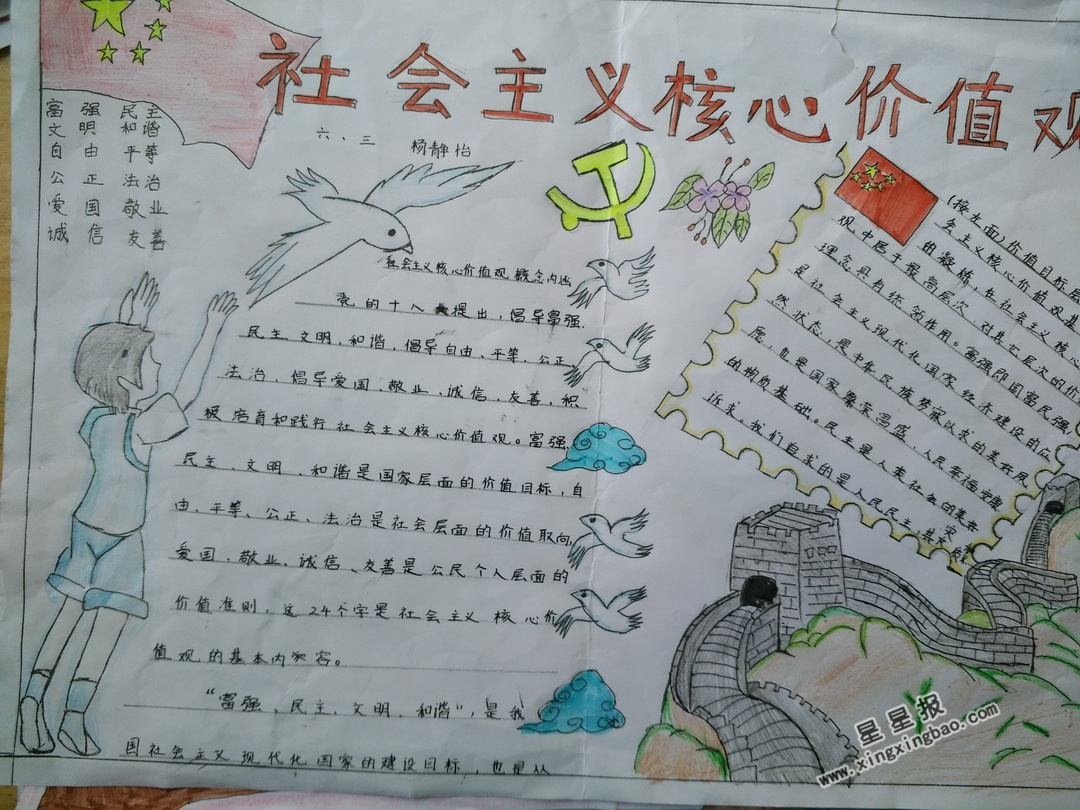 社会主义核心价值观
富强 民主
文明 和谐
自由 平等
公正 法治
爱国 敬业
诚信 友善
六、三 杨静怡
社会主义核心价值观概念内涵
党的十八大提出，倡导富强.
民主、文明、和谐，倡导自由、平等、公正
法治，倡导爱国、敬业、诚信、友善，积
极培育和践行社会主义核心价值观。富强、
民主、文明、和谐是国家层面的价值目标，自
由、平等、公正、法治是社会层面的价值取向，
爱国、敬业、诚信、友善是公民个人层面的
价值准则，这24个字是社会主义核心价
值观的基本内容。
“富强、民主、文明、和谐”，是我
国社会主义现代化国家的建设目标，也是从
(接左面)价值目标层
会主义核心价值观基
的凝炼，在社会主义核心
观中居于最高层次，对其它层次的价
理念具有统领作用。富强即国富民强，
是社会主义现代化国家经济建设的应
然状态，是中华民族梦寐以求的美好夙
愿，也是国家繁荣昌盛、人民幸福安康
的物质基础。民主是人类社会的美好
诉求，我们追求的是人民民主，其实
星星报
www.xingxingbao.com